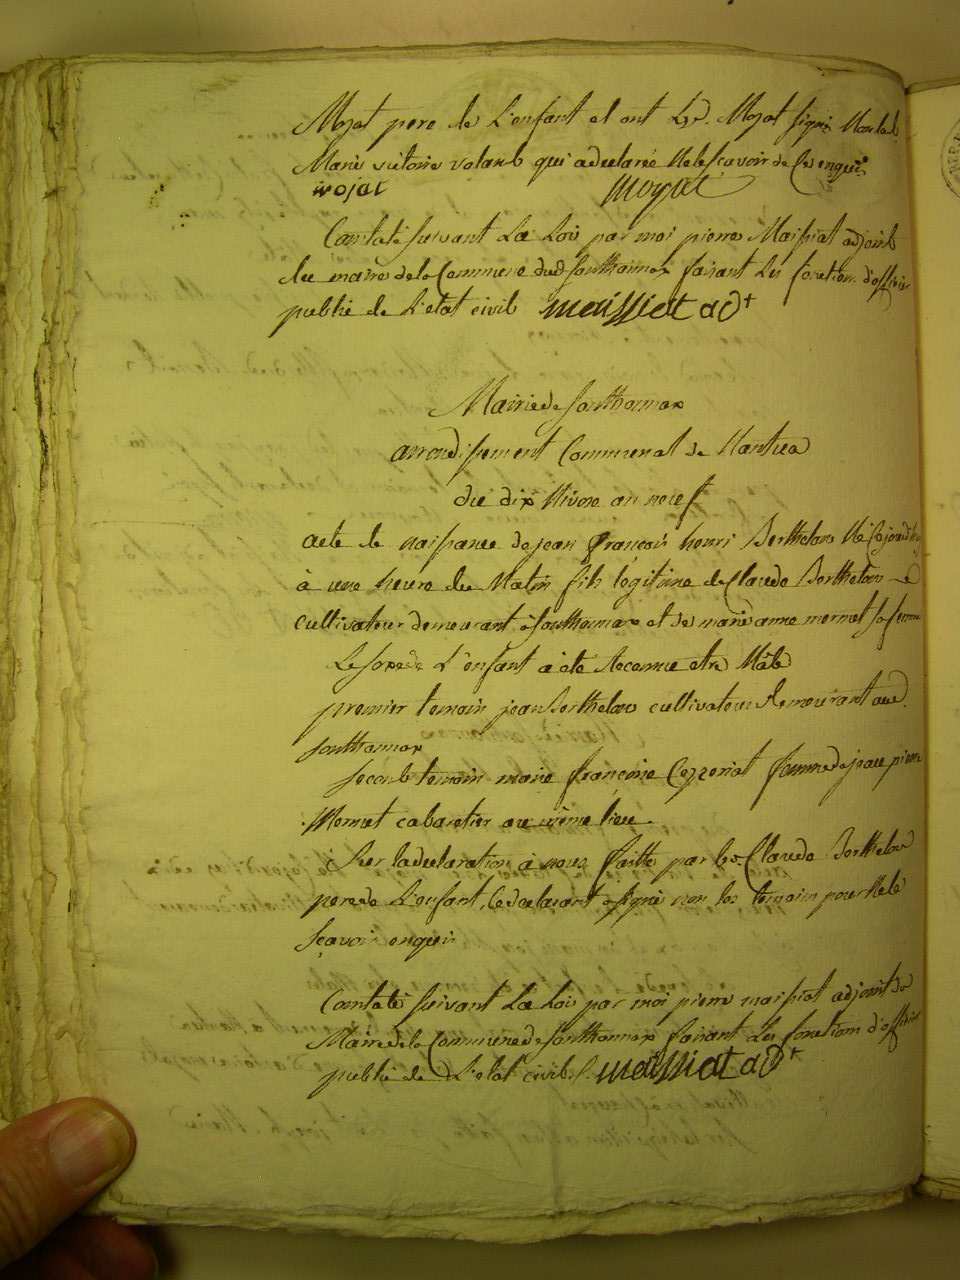 Mojat pere de L'enfant et ont Lesd. Mojat signé non lad.
Marie victoire volant qui a declaree Nele scavoir de Ce enquis
mojat mojat
Constaté suivant La Loi par moi pierre Maissiat adjoint
du maire de la Commune dud Southonnax faisant Les fonction d'officier
public de L'etat civil maissiat adt
Mairie de Southonnax
arrondissement Communal de Nantua
du dix Nivose an neuf
acte de naissance de jean françois henri Berthelon Né Cejourd'huy
à une heure du Matin fils légitime de Claude Berthelon
cultivateur demeurant à Southonnax et de marie anne mermet sa femme
Le sexe de L'enfant à été Reconnue etre Mâle
premier temoin jean Berthelon cultivateur demeurant aud.
Southonnax
second temoin marie françoise femme de jean pierre
Mermet cabaretier au même lieu.
Sur la declaration à nous faitte par led. Claude Berthelon
pere de L'enfant, Le declarant a signé non les temoin pour Nele
sçavoir enquis
Constaté suivant La Loi par moi pierre maissiat adjoint du
Maire de la Commune de Southonnax faisant Les fonction d'officier
public de L'etat civil. maissiat adt